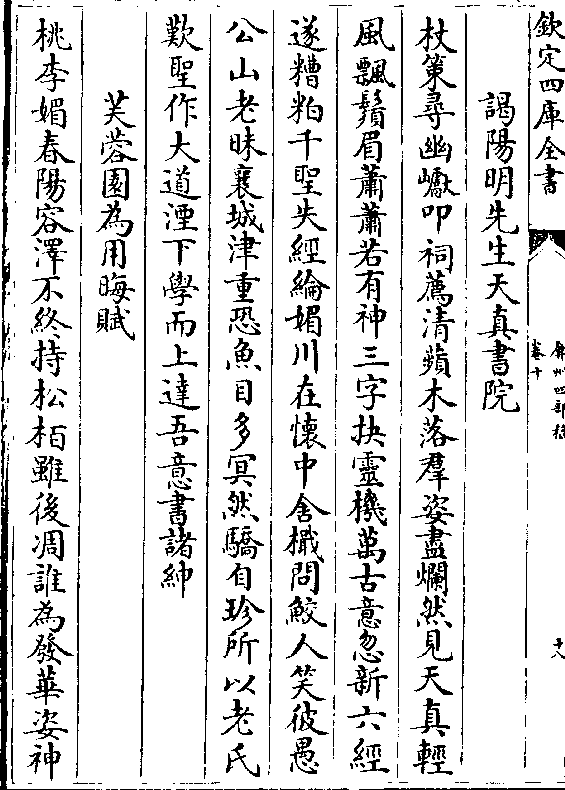 欽定四庫全書
弇州四部稿
卷十
十八
謁陽明先生天真書院
杖策尋幽巘叩祠薦清蘋木落羣姿盡爛然見天真輕
風飄鬚眉蕭蕭若有神三字抉靈機萬古意忽新六經
遂糟粕千聖失經綸媚川在懷中舍櫼問鮫人笑彼愚
公山老昧襄城津重恐魚目多冥然驕自珍所以老氏
歎聖作大道湮下學而上達吾意書諸紳
芙蓉園為用晦賦
桃李媚春陽容澤不終持松栢雖後凋誰為發華姿神